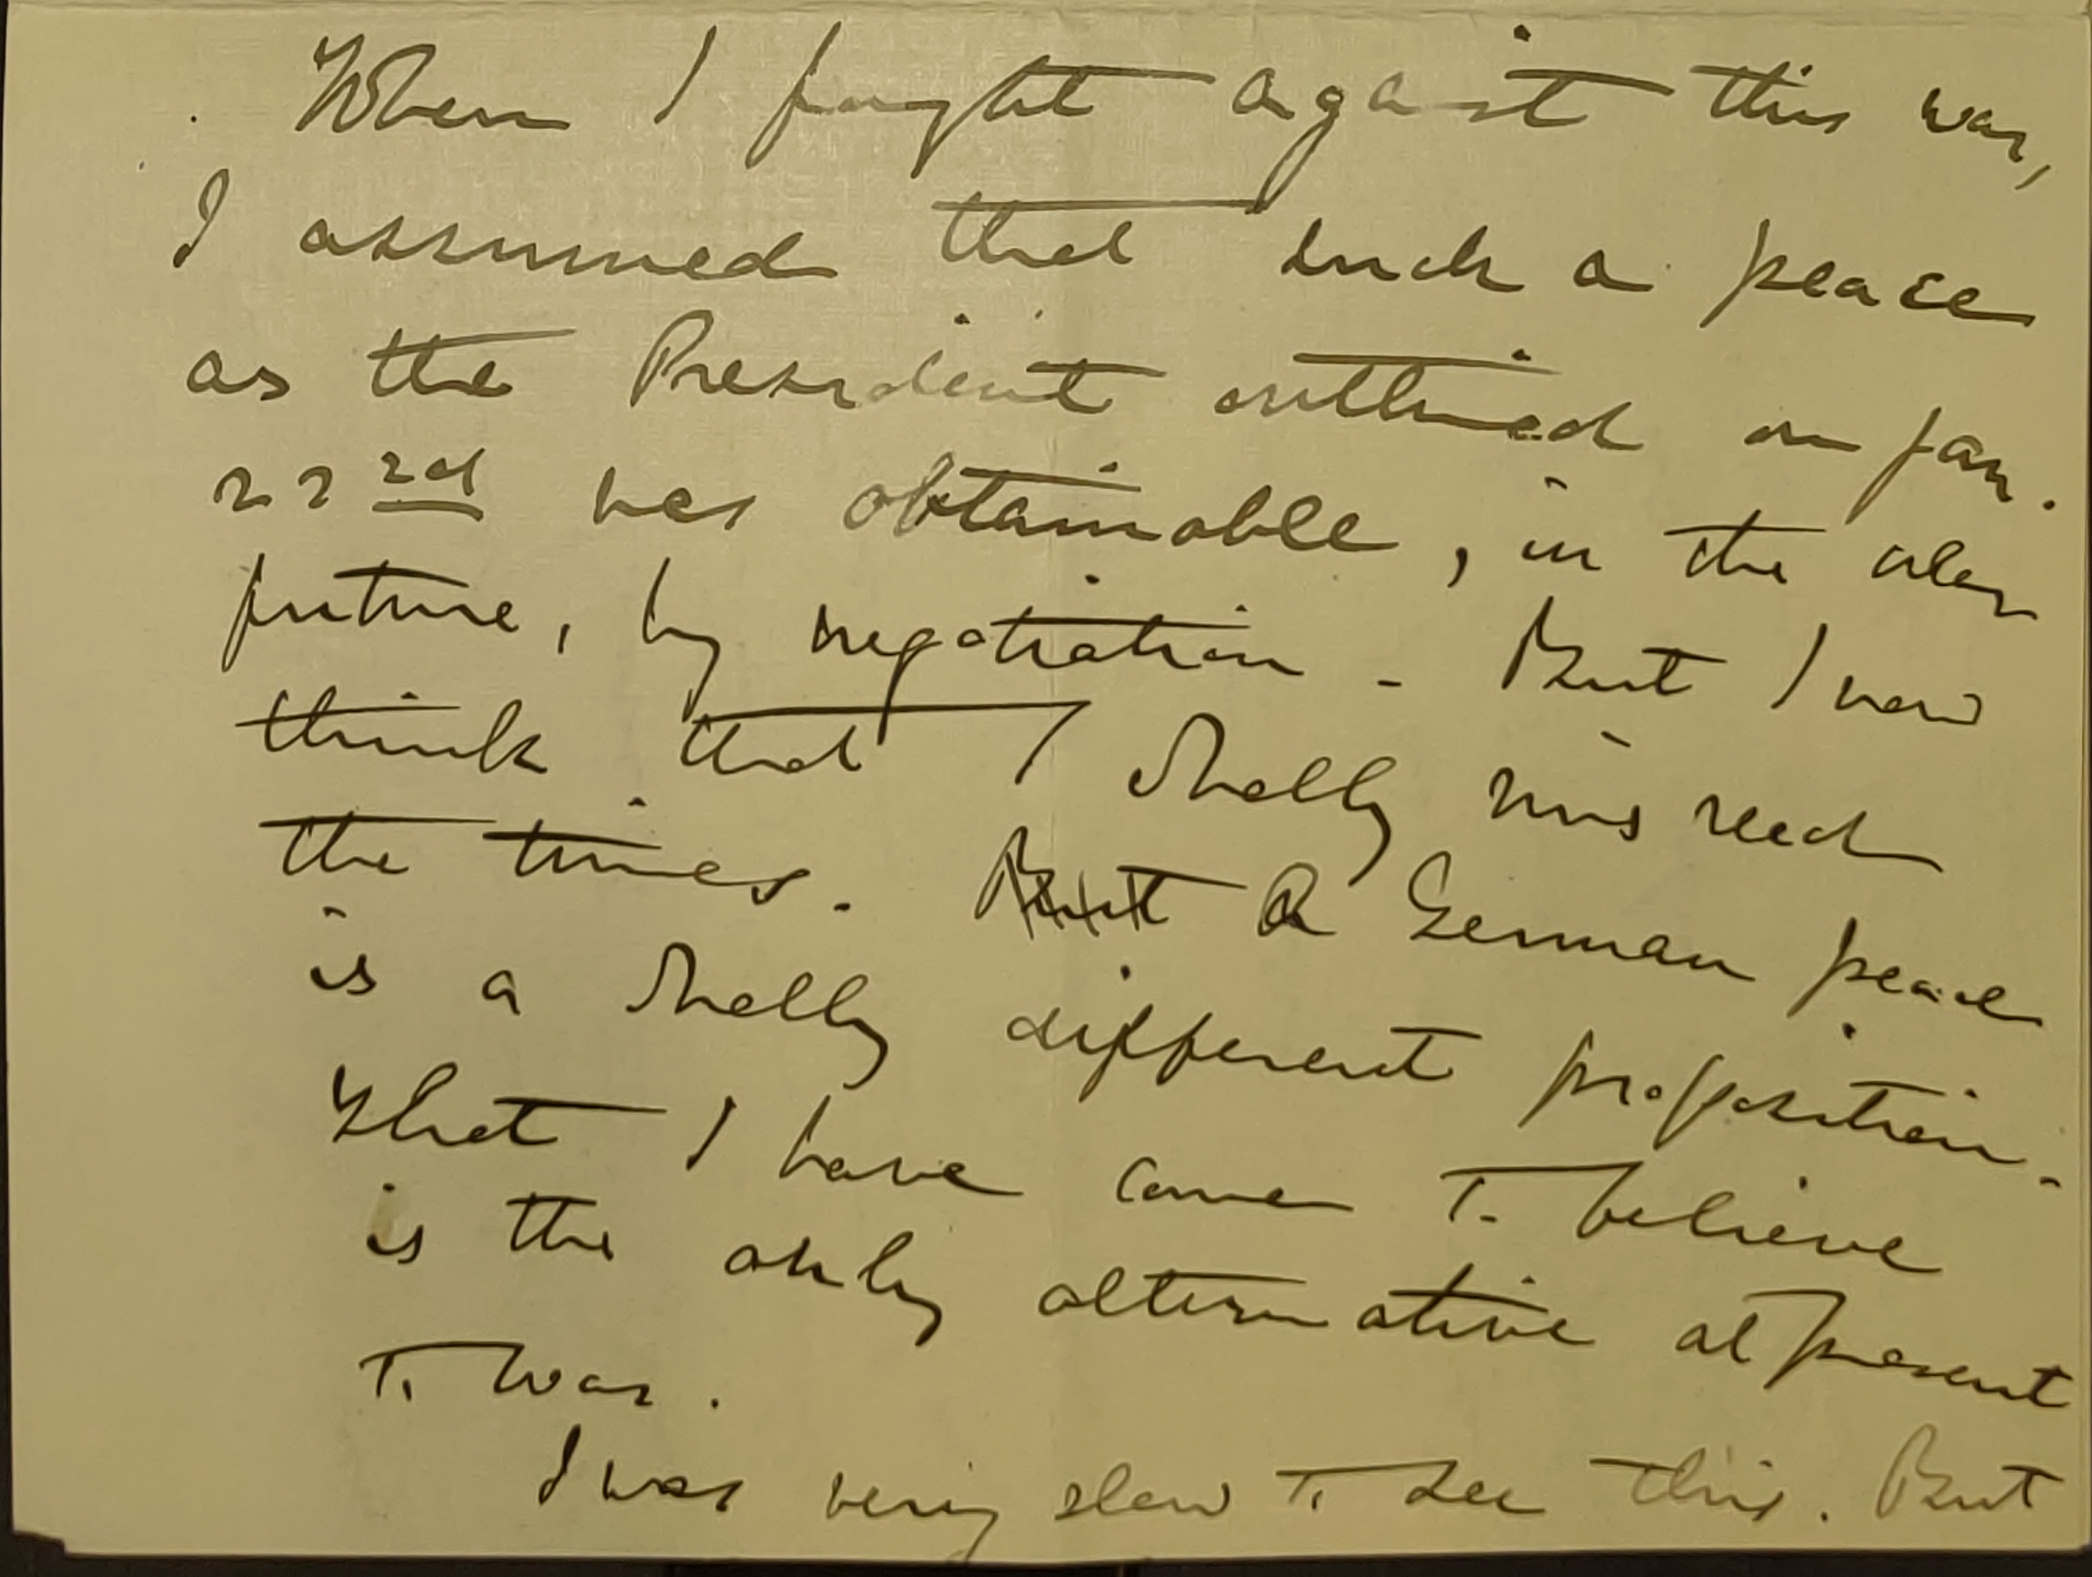 When I fought against this war,
I assumed that such a peace
as the President outlined on Jan.
22nd was obtainable, in the near
future, by negotiation. But I now
think that I wholly misread
the times. But A German peace
is a wholly different proposition.
That I have come to believe
is the only alternative at present
to war.
I was very slow to see this. But